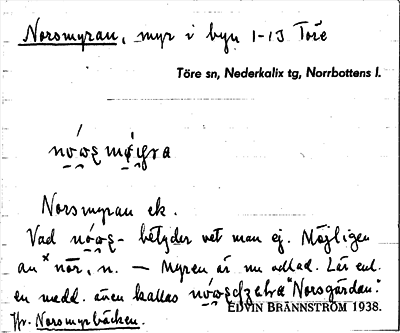 Norsmyran, myr i byn 1-13 Töre
Töre sn, Nederkalix tg, Norrbottens l.
Norsmyran ek.
Vad - betyder vet man ej. Möjligen
av *nōr, n. — Myren är nu odlad. Lär enl.
en medd. även kallas "Norsgärdan".
Jfr. Norsmyrbäcken.
EDVIN BRÄNNSTRÖM 1938.